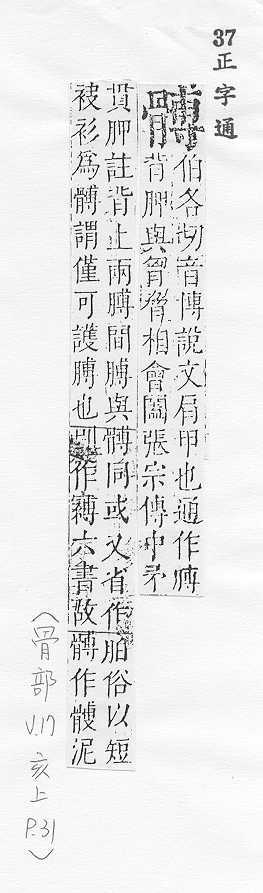 37正字通
髆
伯各切音博說文肩甲也通作膊
背胛與胷脅相會闔張宗傳中矛
貫胛註背上兩膊間膊與髆同或又省作胉俗以短
被衫爲髆謂僅可護膊也別作䪙六書故髆作骳泥
(骨部 V.17 亥上 P.31)